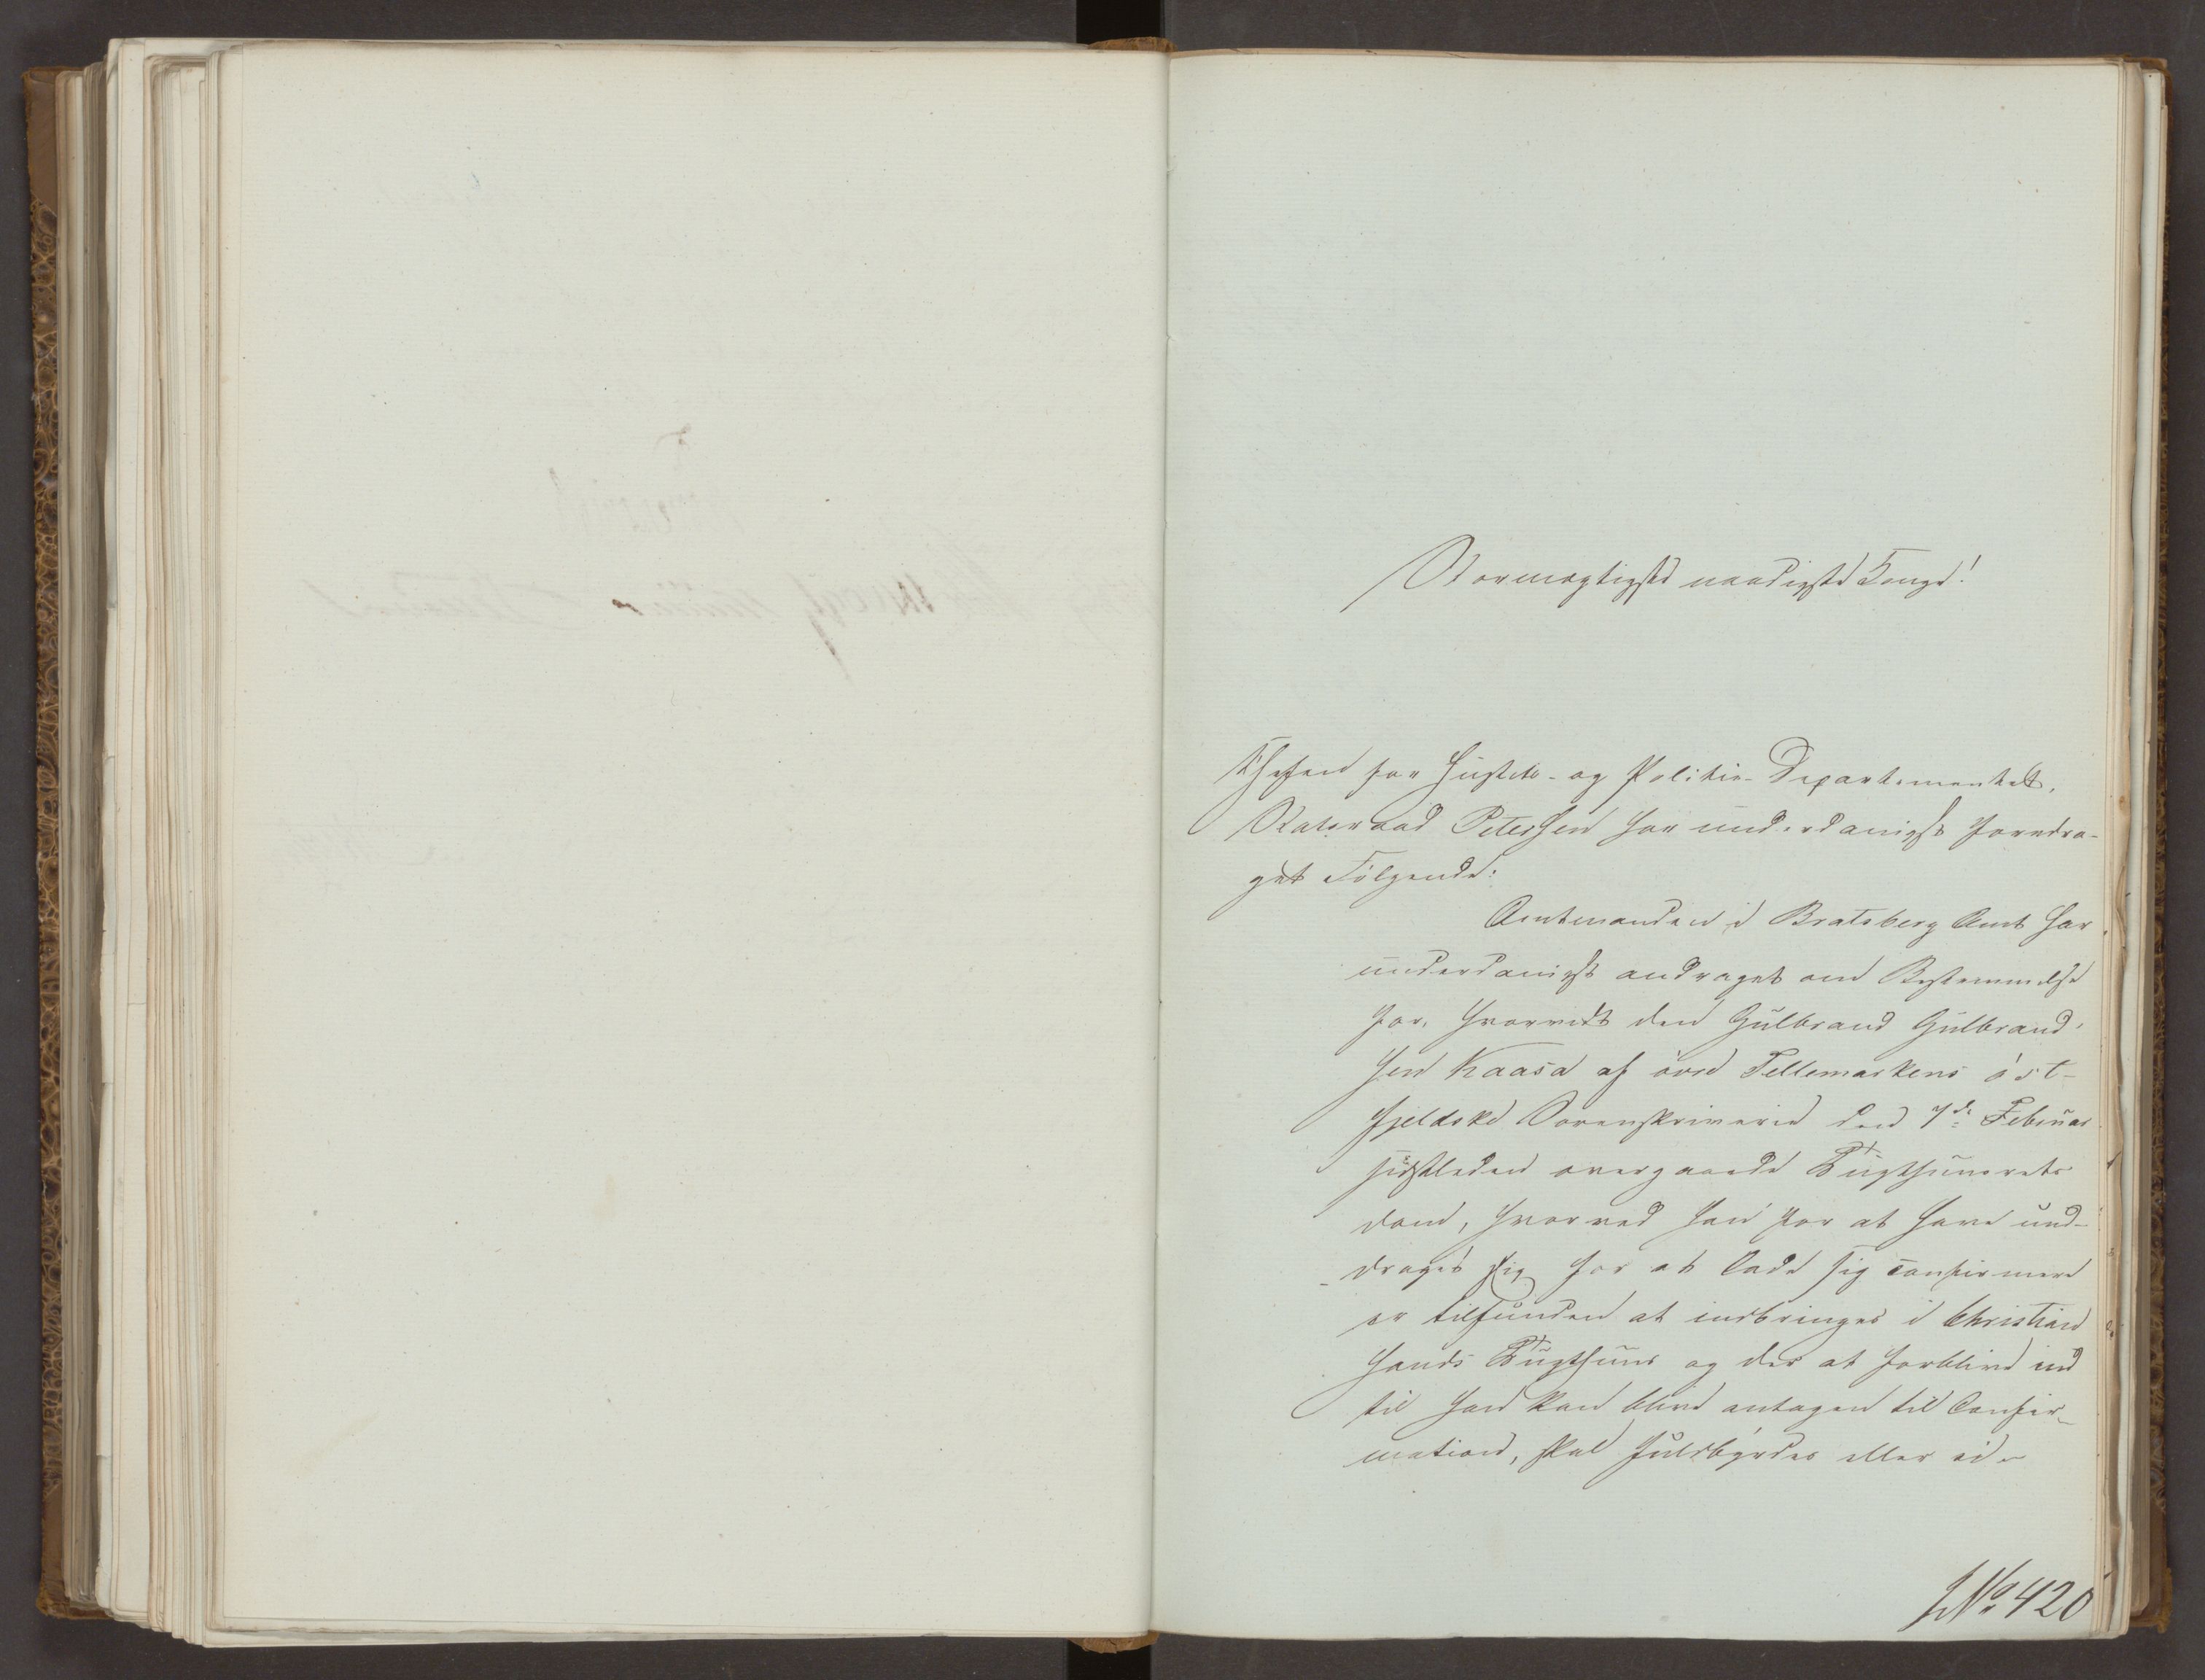 Stormægtigste naadigste Konge!
Chefen for Justits- og Politie-Departementet,
Statsraad Petersen har underdanigst foredra-
get Følgende:
Amtmanden i Bratsberg Amt har
underdanigst andraget om Bestemmelse
for, hvorvidt den Gulbrand Gulbrand-
sen Kaasa af øvre Tellemarkens øst-
fjeldske Sorenskriverie den 7de Februar
sidstleden overgaaede Tugthusrets
dom, hvorved han for at have und-
draget sig for at lade sig confirmere
er tilfunden at indbringes i Christian
sands Tugthuus og der at forblive ind
til han kan blive antagen til Confir-
mation, skal fuldbyrdes eller ei.
JNo. 420